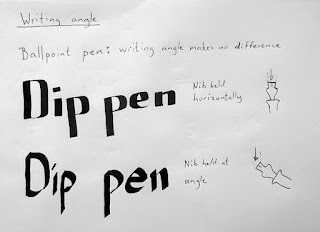 Writing angle
Ballpoint pen: writing angle makes no difference
Dip pen
Nib held
horizontally
Dip pen
Nib held at
angle